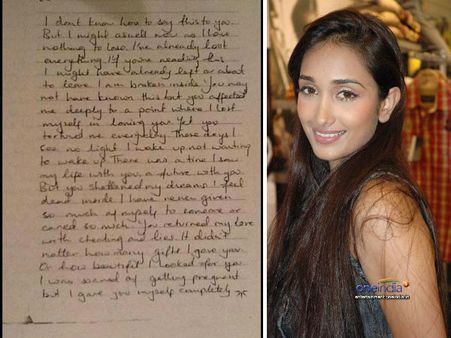 I don't know how to say this to you.
But I might aswell now as I have
nothing to lose. I've already lost
everything. If you're reading this
I might have already left or about
to leave. I am broken inside. You may
not have known this but you affected
me deeply to a point where I lost
myself in loving you. Yet you
tortured me everyday. These days I
see no light I wake up not wanting
to wake up. There was a time I saw
my life with you, a future with you.
But you shattered my dreams. I feel
dead inside. I have never given
so much of myself to someone or
cared so much. You returned my love
with cheating and lies. It didn't
matter how many gifts I gave you.
Or how beautiful I looked for you.
I was scared of getting pregnant
but I gave you myself completely
oneindia